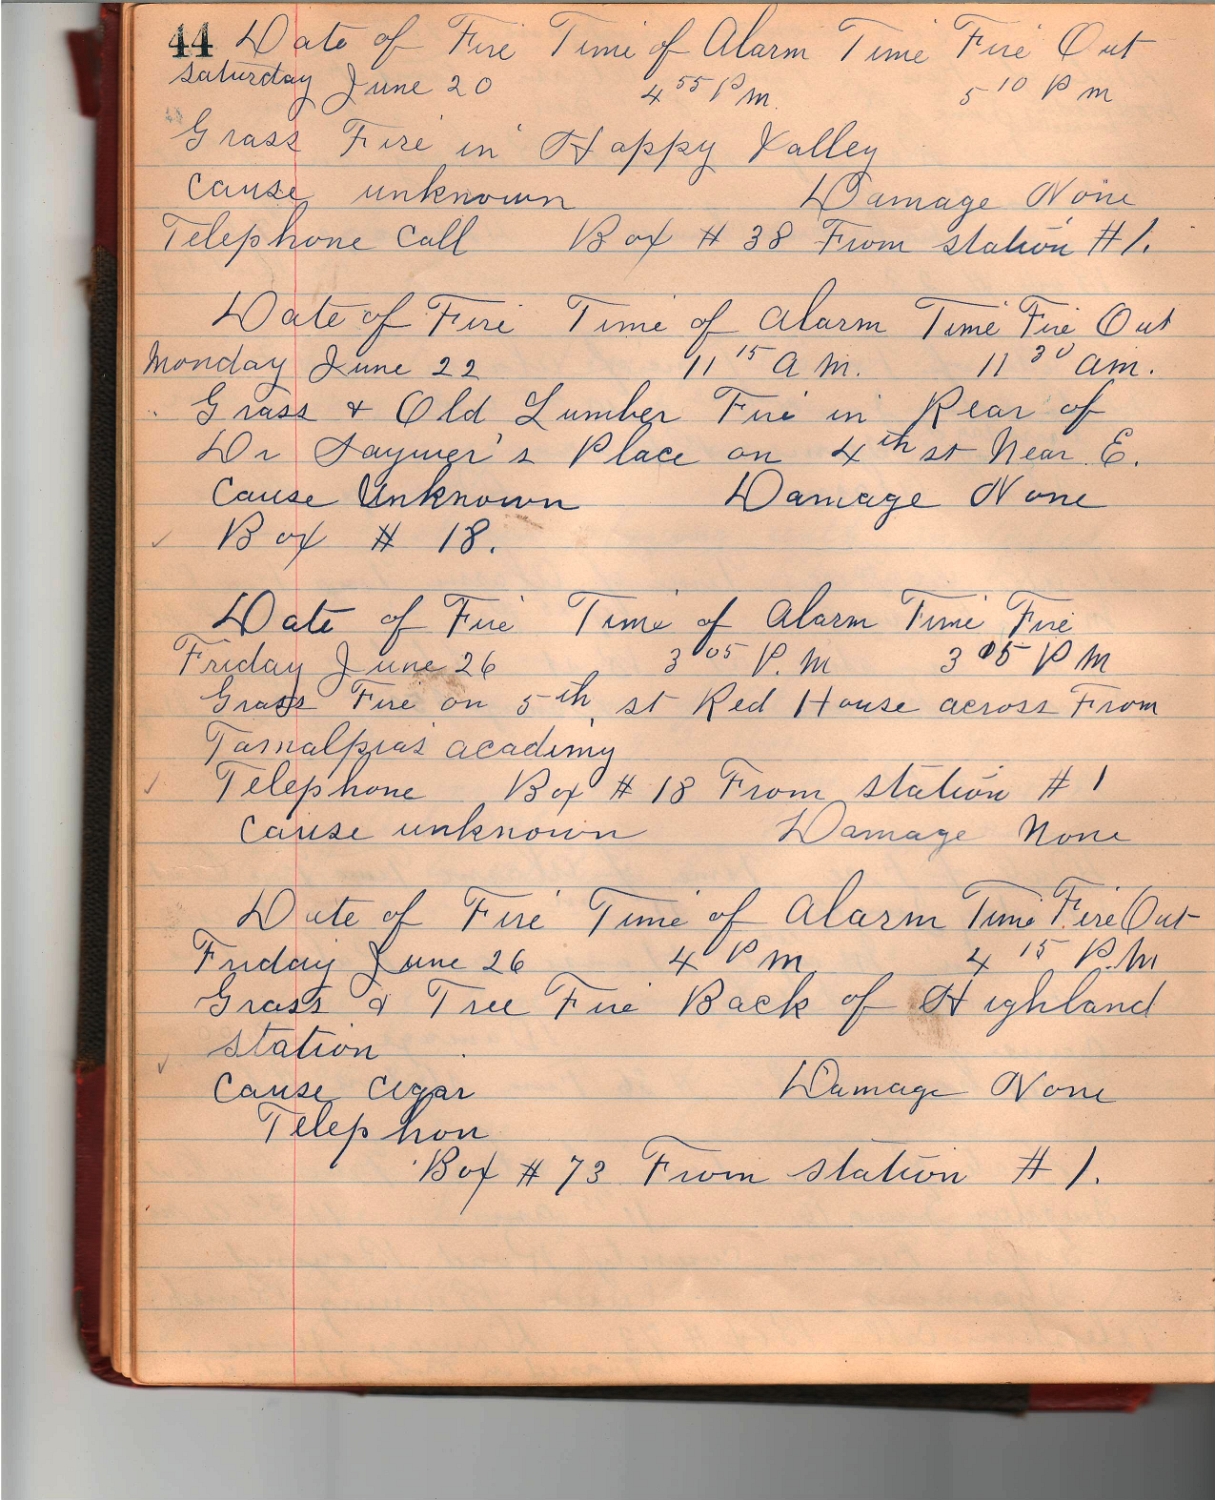 44 Date of Fire Time of Alarm Time Fire Out
Saturday June 20 4 55 P m. 5 10 P m
Grass Fire in Happy Valley
Cause unknown Damage None
Telephone Call Box # 38 From station #1.
Date of Fire Time of Alarm Time Fire Out
Monday June 22 11 15 a m. 11 30 am.
Grass & Old Lumber Fire in Rear of
Dr Place on 4th st Near E.
Cause Unknown Damage None
Box # 18.
Date of Fire Time of Alarm Time Fire
Friday June 26 3 05 P. M 3 05 P M
Grass Fire on 5th st Red House across From
Tamalpias academy
Telephone Box # 18 From station # 1
Cause unknown Damage None
Date of Fire Time of Alarm Time Fire Out
Friday June 26 4 P m 4 15 P.M
Grass & Tree Fire Back of Highland
station
Cause Cigar Damage None
Telephon
Box # 73 From station # 1.